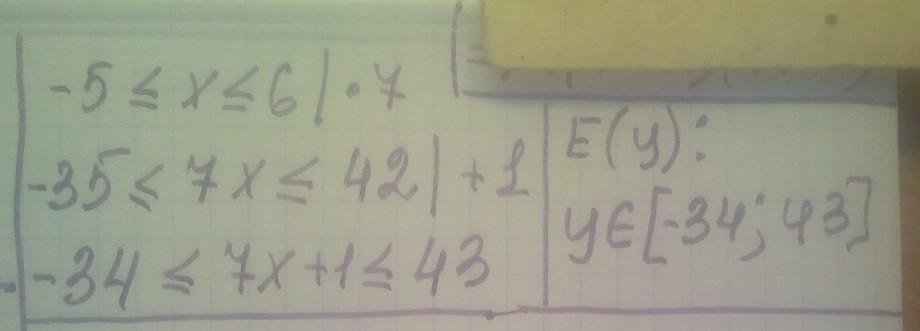 -5 ≤ x ≤ 6 | • 7
-35 ≤ 7x ≤ 42 | + 1
-34 ≤ 7x + 1 ≤ 43
E(y):
y∈[-34; 43]